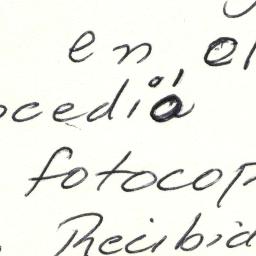 en el
ocedió
fotocop
Recibid